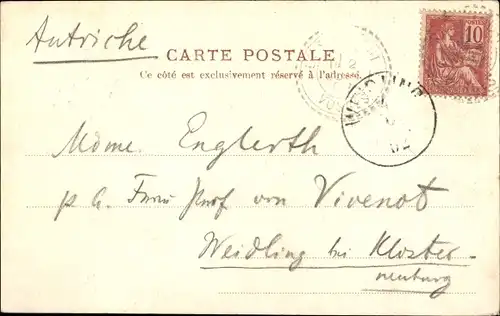 Autriche
CARTE POSTALE
Ce côté est exclusivement réservé à l'adresse.
POSTES
10
WEIDLING
02
Mdme. Englerth
p. A. Frau Prof von Vivenot
Weidling bei Kloster-
neuburg